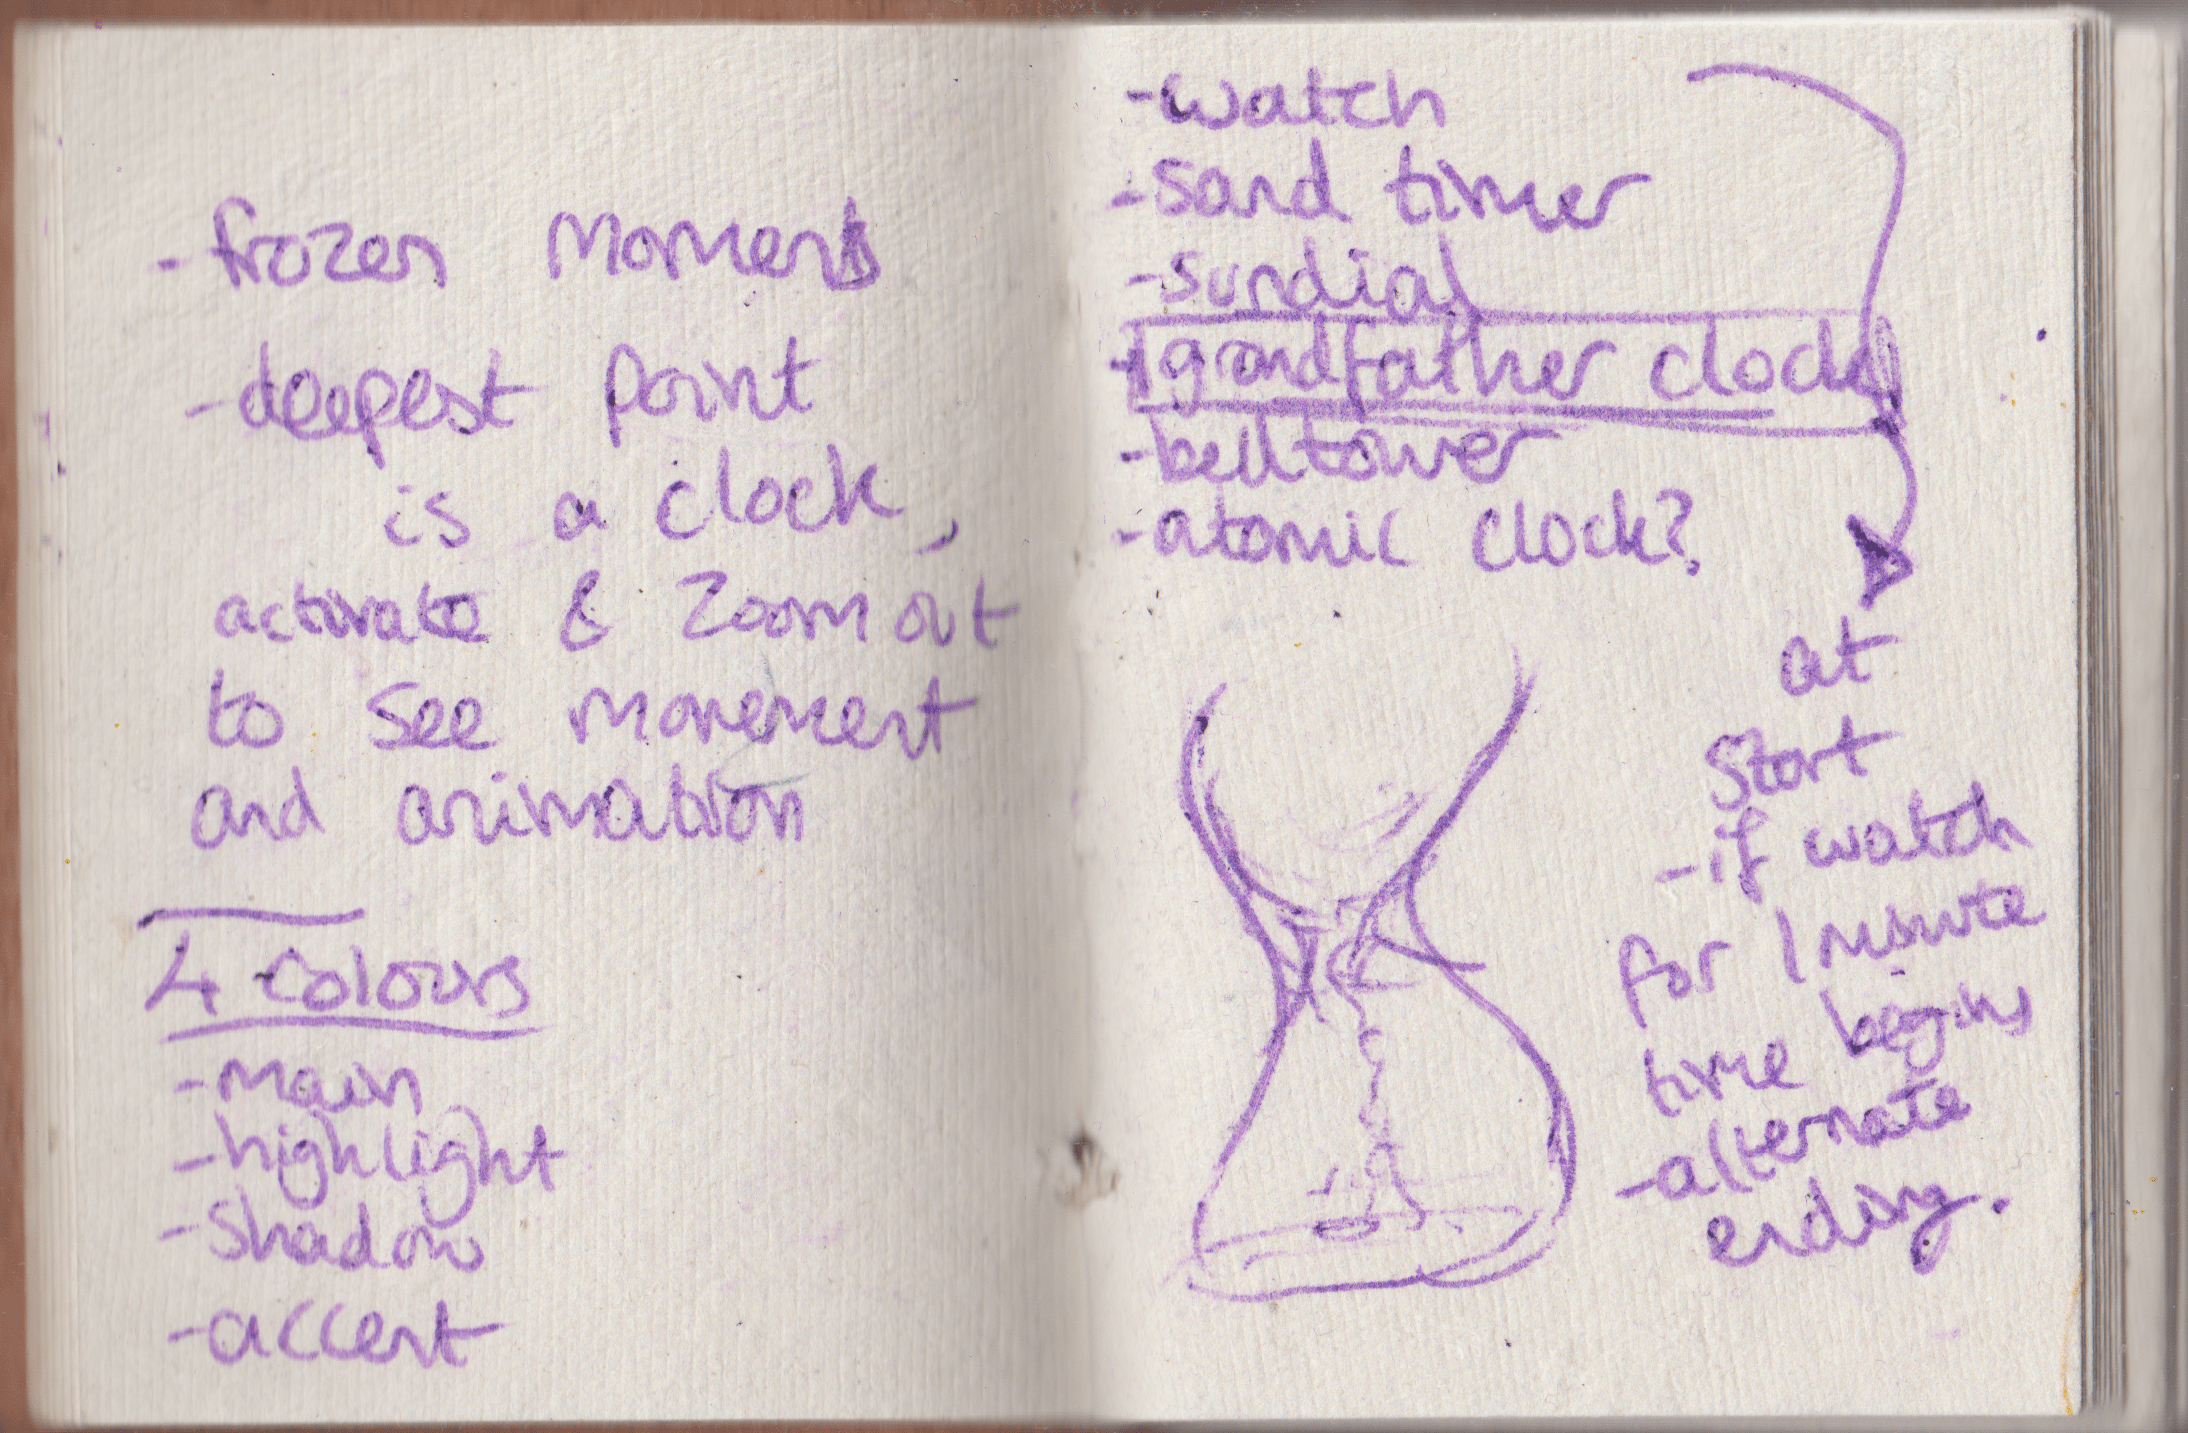 - frozen moment
- deepest point
is a clock,
activate & zoom out
to see movement
and animation
4 colours
- main
- highlight
- shadow
- accent
- watch
- sand timer
- sundial
- grandfather clock
- belltower
- atomic clock?
at
start
- if watch
for 1 minute
time begins
- alternate
ending.